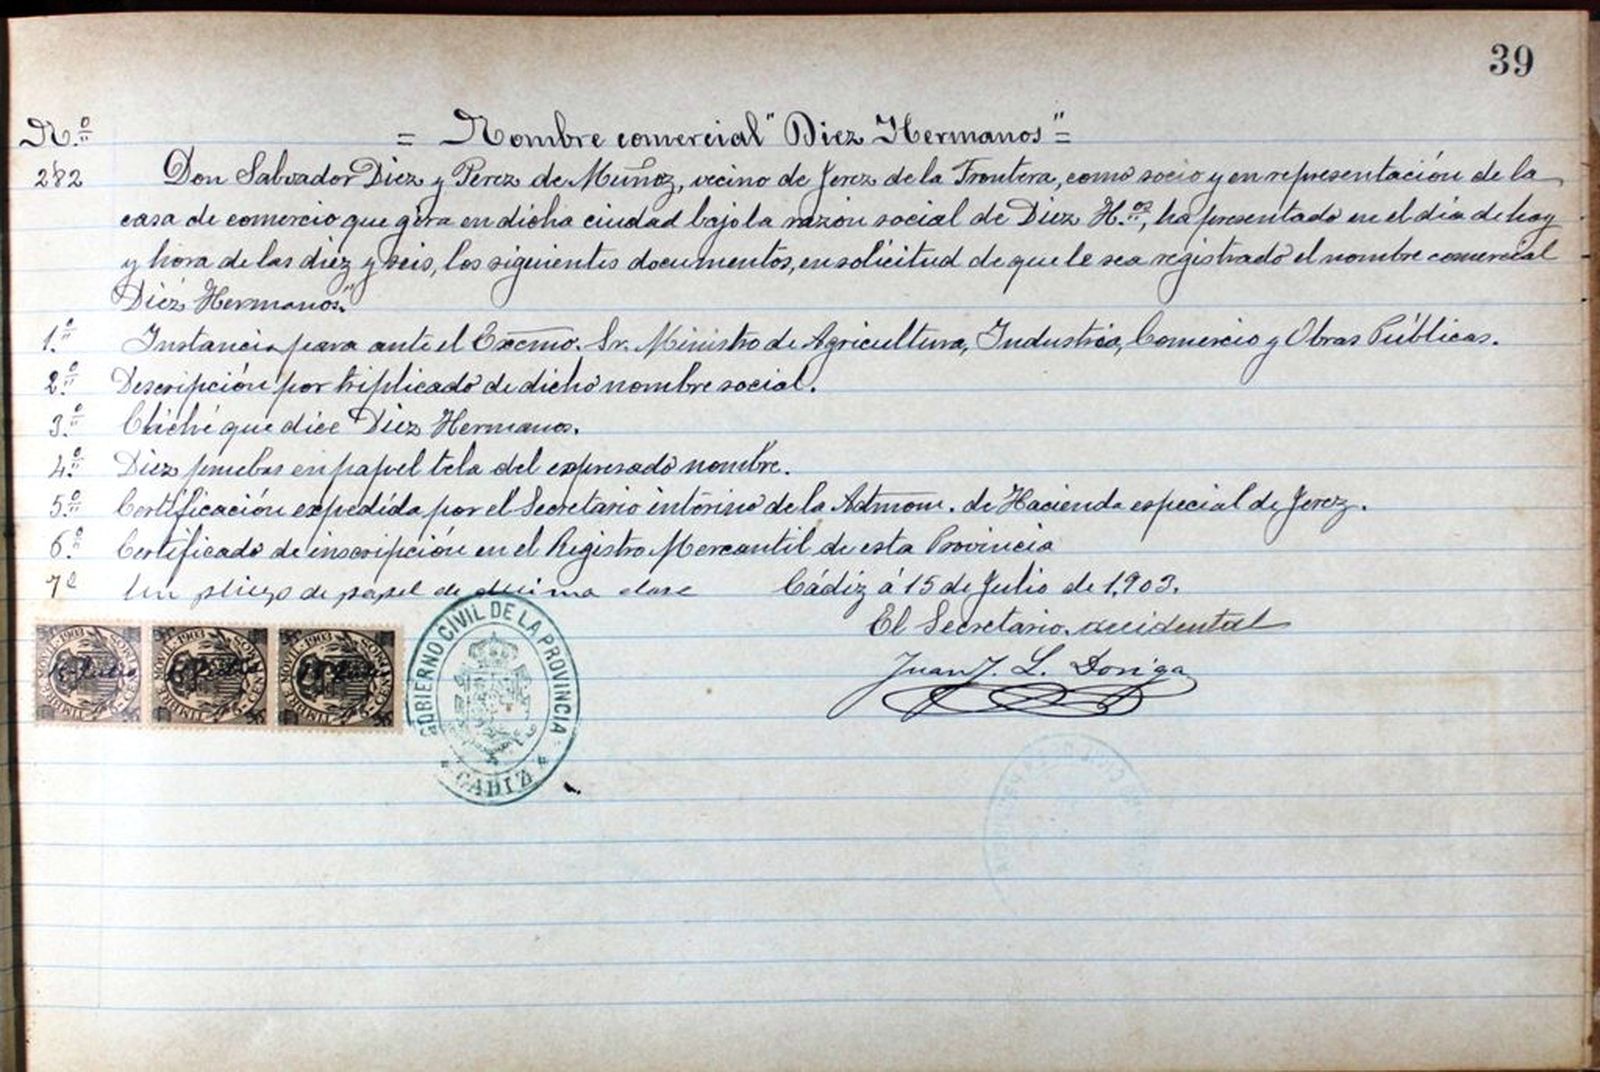 39
N.º = Nombre comercial "Diez Hermanos" =
282 Don Salvador Diez y Perez de Muñoz, vecino de Jerez de la Frontera, como socio y en representación de la
casa de comercio que gira en dicha ciudad bajo la razón social de Diez H.os, ha presentado en el dia de hoy
y hora de las diez y seis, los siguientes documentos, en solicitud de que le sea registrado el nombre comercial
Diez Hermanos."
1.º Instancia para ante el Excmo. Sr. Ministro de Agricultura, Industria, Comercio y Obras Públicas.
2.º Descripción por triplicado de dicho nombre social.
3.º Cliché que dice Diez Hermanos.
4.º Diez pruebas en papel tela del expresado nombre.
5.º Certificación expedida por el Secretario interino de la Admon. de Hacienda especial de Jerez.
6.º Certificado de inscripción en el Registro Mercantil de esta Provincia
7º Un pliego de papel de decima clase Cádiz á 15 de Julio de 1,903.
El Secretario accidental
Juan J. L. Doriga
TIMBRE MOVIL·1903 5 CENTIMOS
TIMBRE MOVIL·1903 5 CENTIMOS
TIMBRE MOVIL·1903 5 CENTIMOS
GOBIERNO CIVIL DE LA PROVINCIA
* CADIZ *